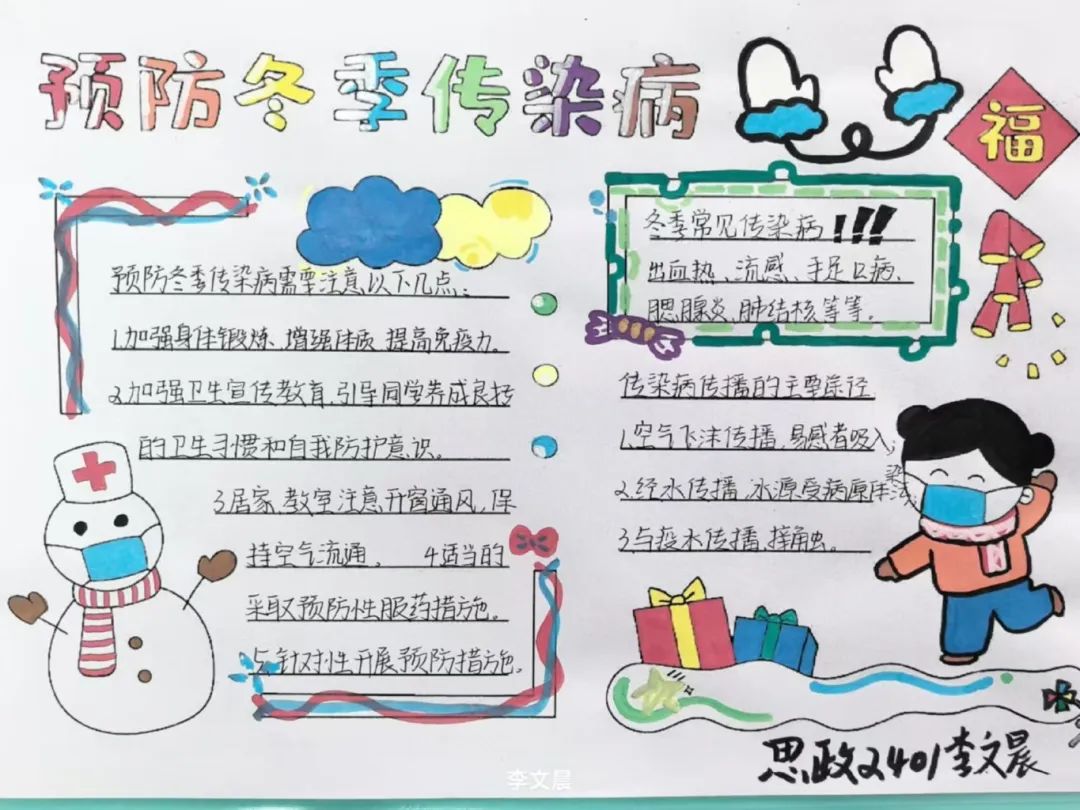 预防冬季传染病
福
预防冬季传染病需要注意以下几点:
1.加强身体锻炼、增强体质、提高免疫力。
2.加强卫生宣传教育,引导同学养成良好
的卫生习惯和自我防护意识。
3.居家、教室注意开窗通风,保
持空气流通。 4.适当的
采取预防性服药措施。
5.针对性开展预防措施。
冬季常见传染病!!!
出血热、流感、手足口病、
腮腺炎、肺结核等等。
传染病传播的主要途径
1.空气飞沫传播,易感者吸入;
2.经水传播,水源受病原体污染;
3.与疫水传播,接触。
思政2401李文晨
李文晨